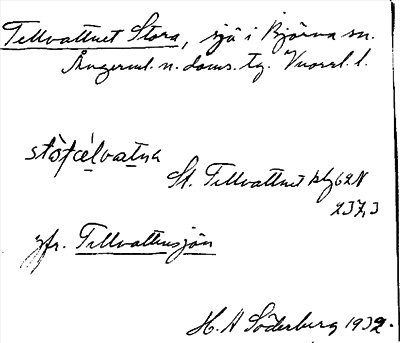 Tellvattnet Stora, sjö i Björna sn.
Ångerml. n. doms. tg. Vnorrl. l.
stòʃtélvatn̥a
St. Tellvattnet bl 62 N
jfr. Tellvattensjön
H. A Söderberg 1932.